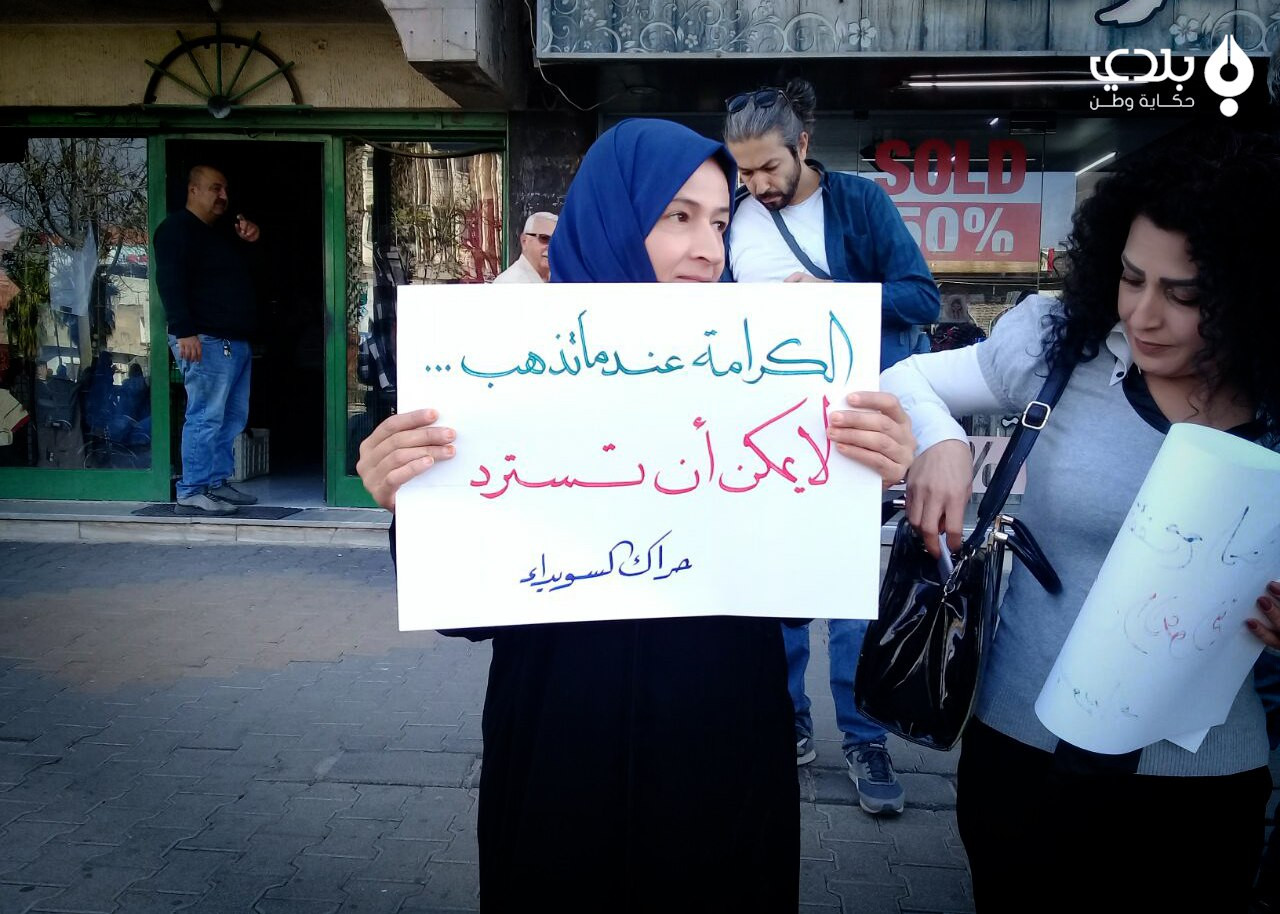 بلدي
حكاية وطن
SOLD
50%
الكرامة عندما تذهب ...
لا يمكن أن تسترد
حراك السويداء
%